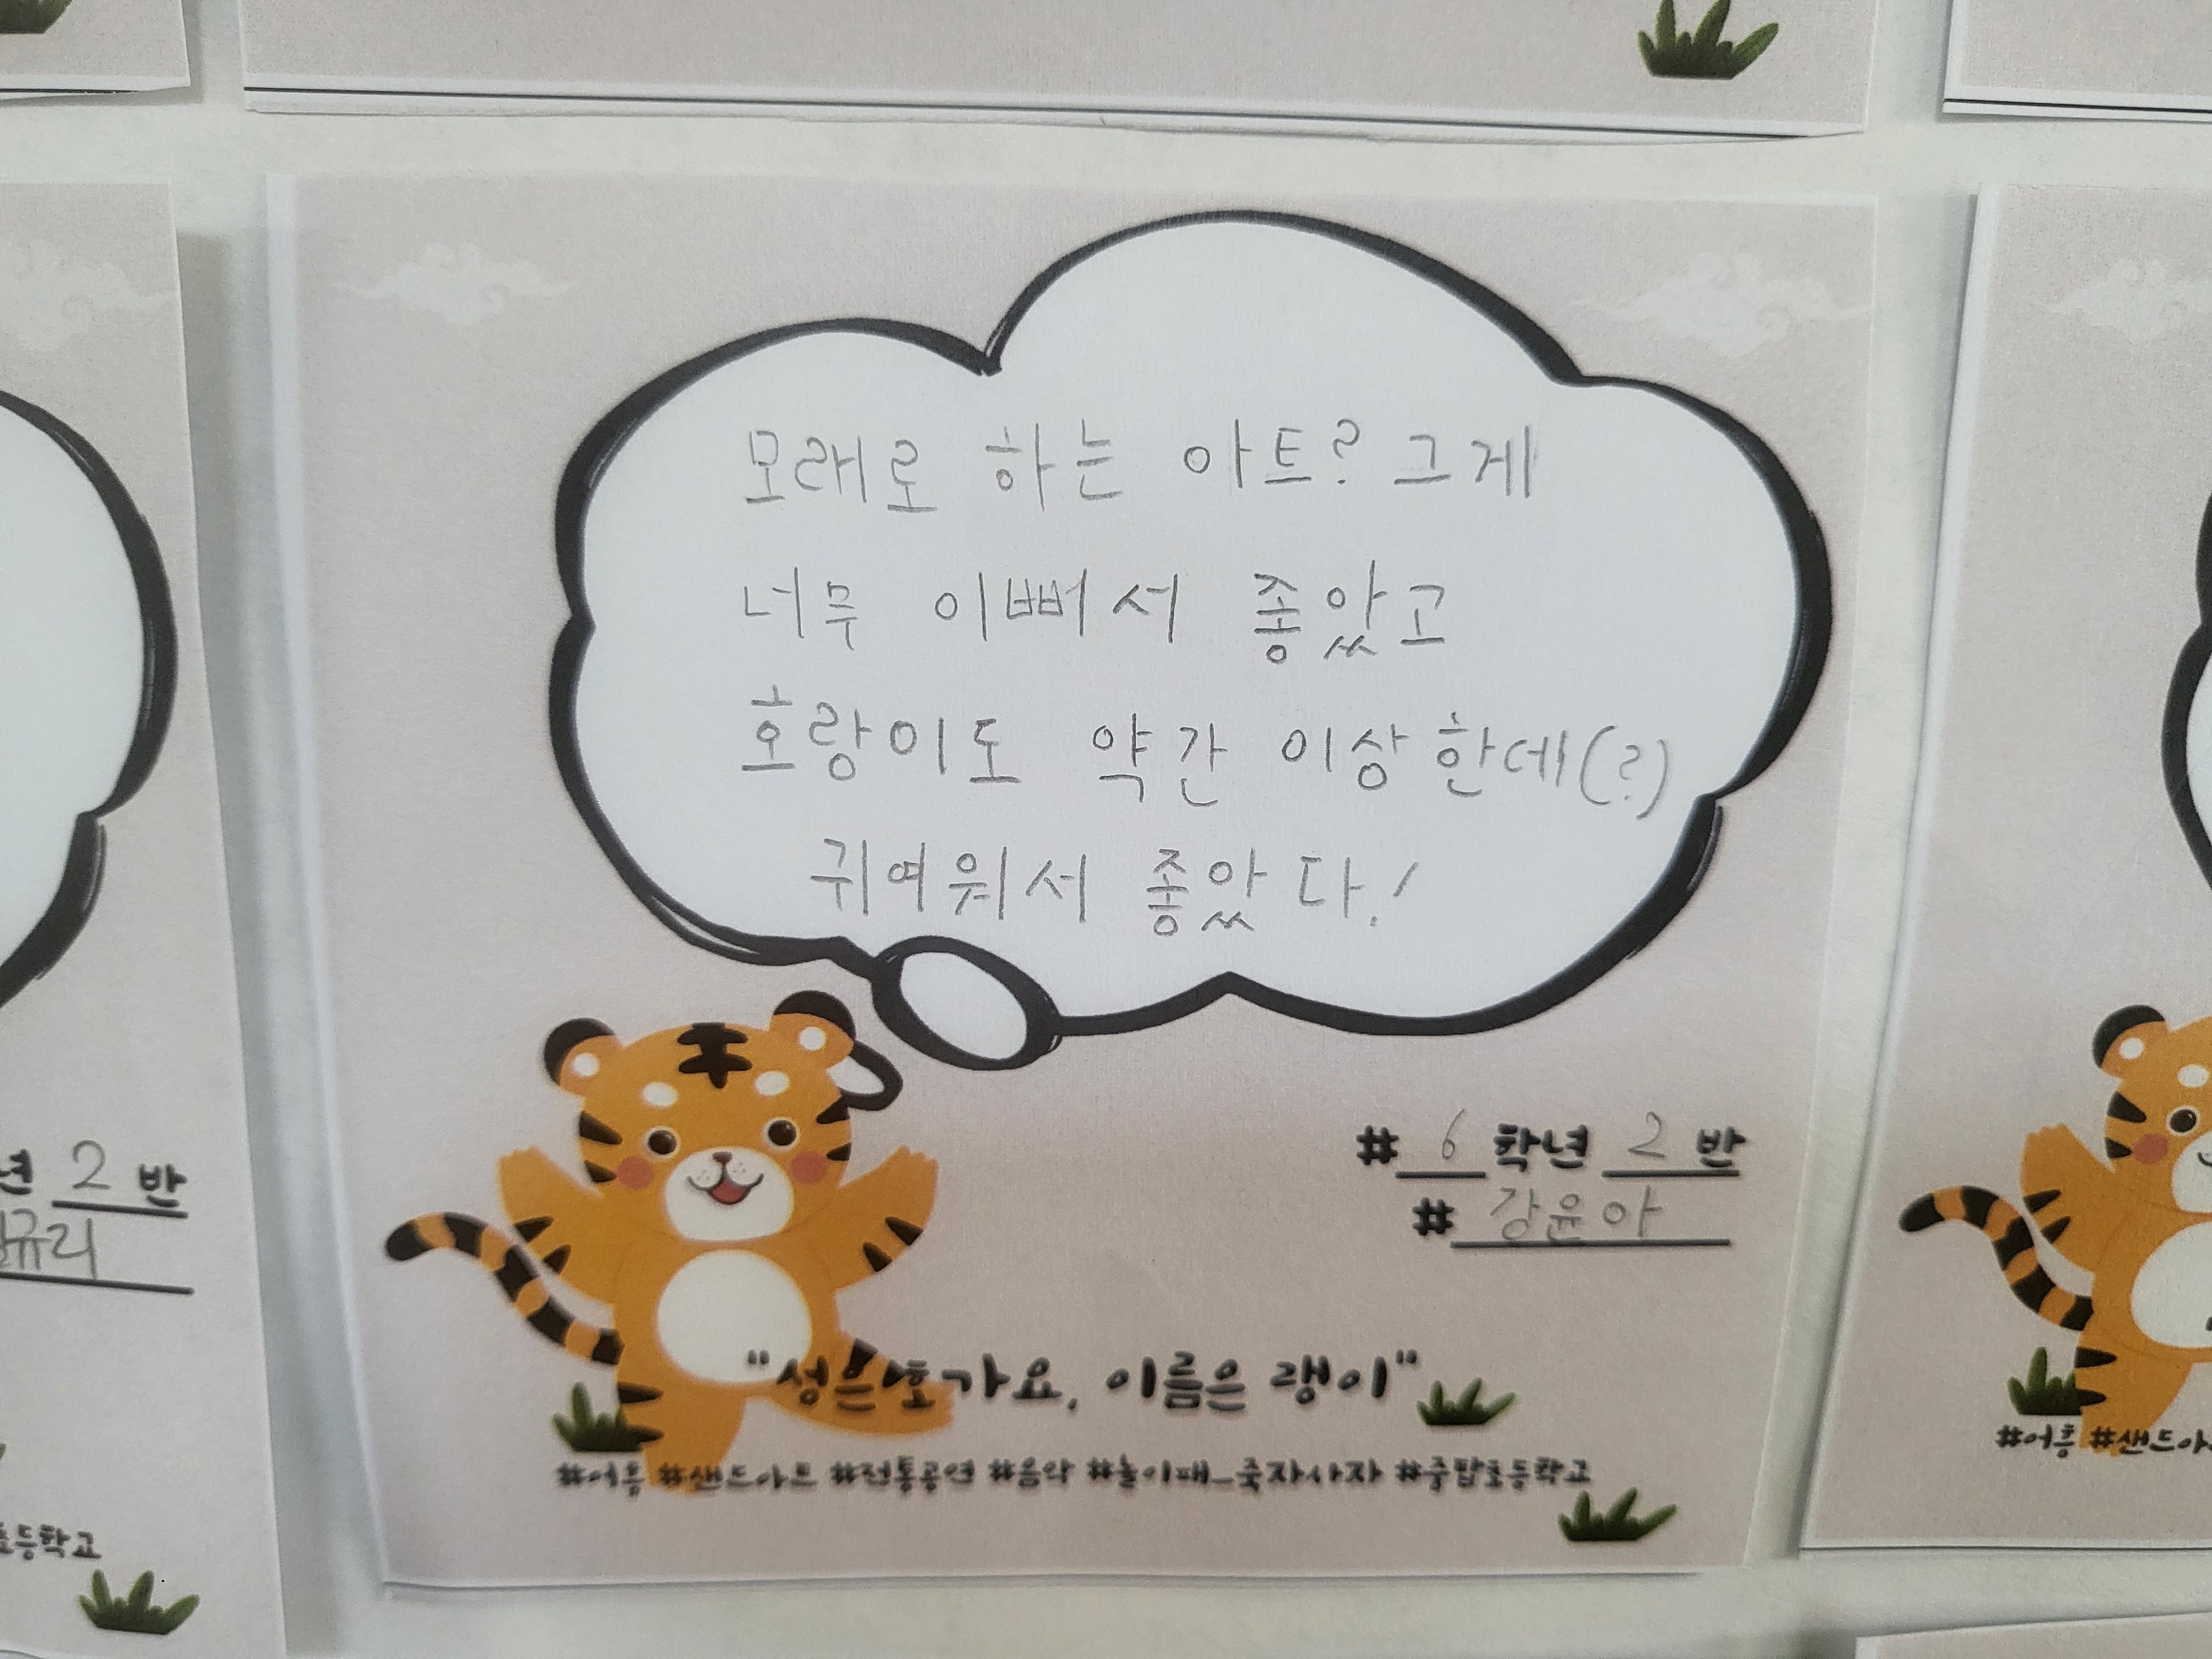 모래로 하는 아트? 그게
너무 이뻐서 좋았고
호랑이도 약간 이상한데(?)
귀여워서 좋았다!
# 6 학년 2 반
# 강윤아
"성은 호가요, 이름은 랭이"
#어흥 #샌드아트 #전통공연 #음악 #놀이패_죽자사자 #중탑초등학교
년 2 반
규리
초등학교
#어흥 #샌드아